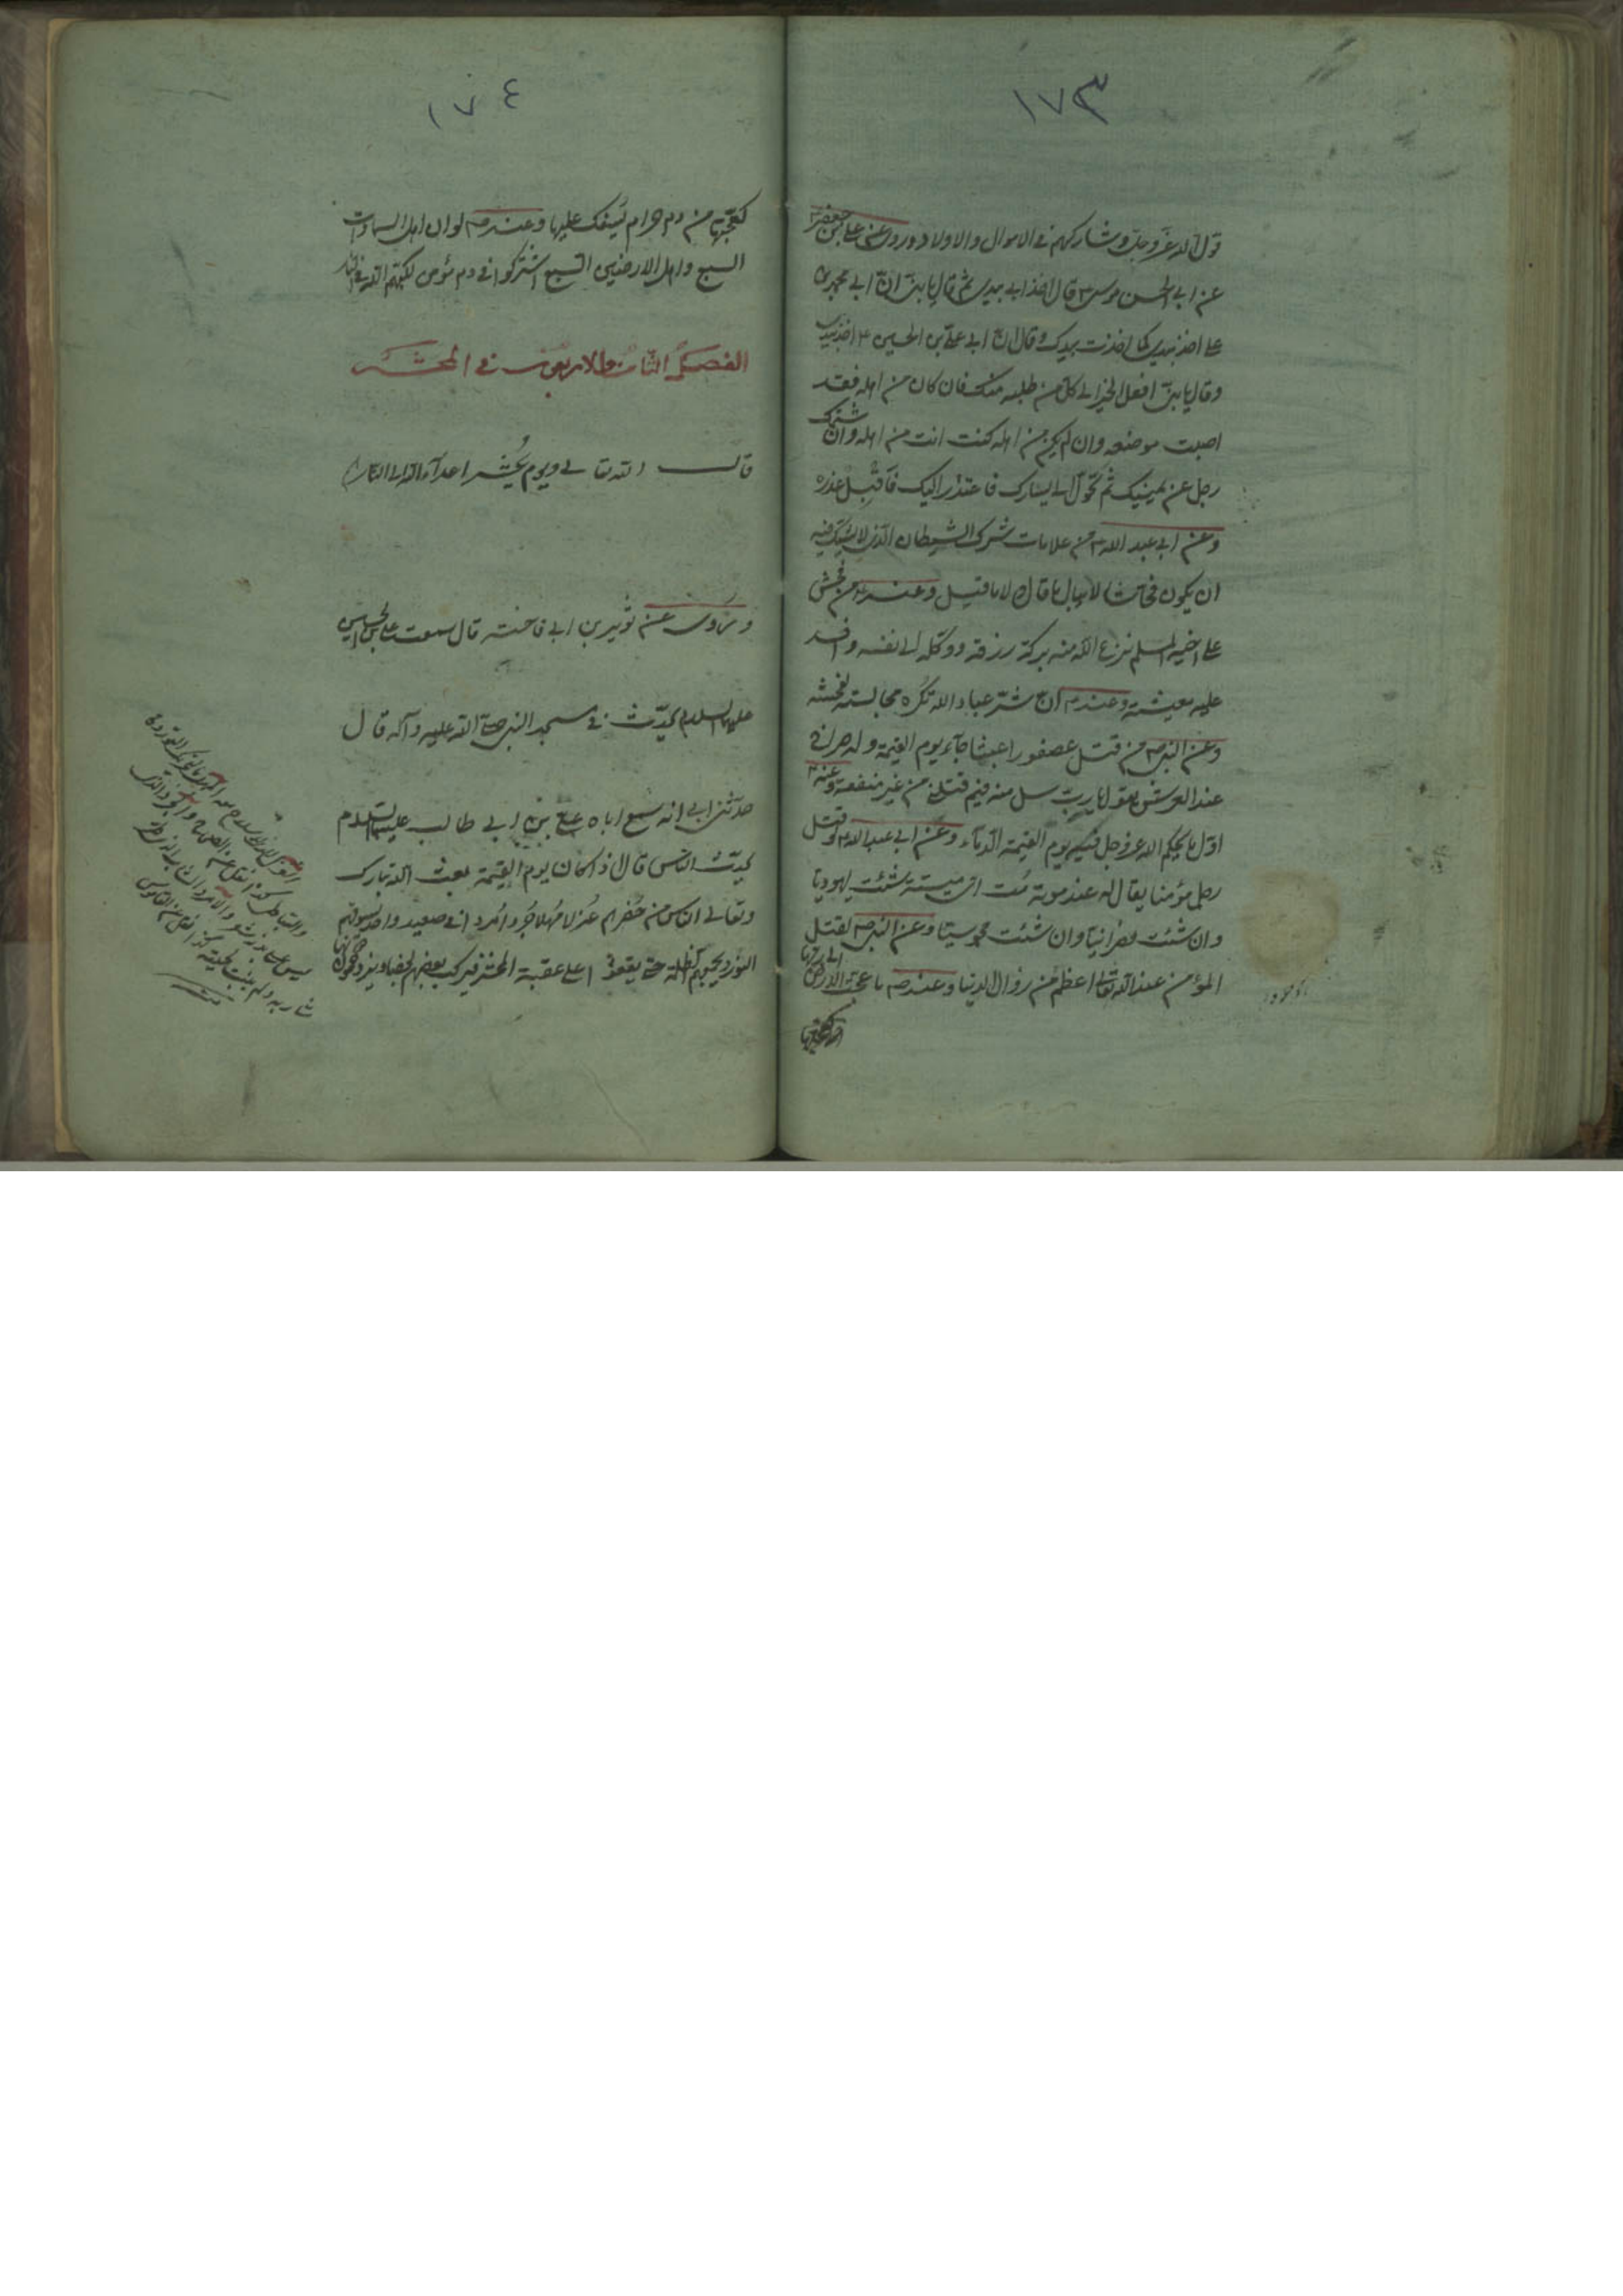 ١٧٣
قول الله عز وجل وشاركهم في الاموال والاولاد وروى عن علي بن جعفر
عن ابي الحسن موسى ع قال اخذ ابي بيدي ثم قال يا بني ان ابي محمد بن
علي اخذ بيدي كما اخذت بيدك وقال ان ابي علي بن الحسين ع اخذ بيدي
وقال يا بني افعل الخير الى كل من طلبه منك فان كان من اهله فقد
اصبت موضعه وان لم يكن من اهله كنت انت من اهله وان شتمك
رجل عن يمينك ثم تحول الى يسارك فاعتذر اليك فاقبل عذره
وعن ابي عبد الله ع من علامات شرك الشيطان الذي لا يشك فيه
ان يكون فحاشا لا يبالي ما قال ولا ما قيل وعنه ع من فحش
على اخيه المسلم نزع الله منه بركة رزقه ووكله الى نفسه وافسد
عليه معيشته وعنه ص ان شر عباد الله تكره مجالسته لفحشه
وعن النبي ص من قتل عصفورا عبثا جاء يوم القيمة وله صراخ
عند العرش يقول يا رب سل هذا فيم قتلني من غير منفعة وعنه ص
اول ما يحكم الله عز وجل فيه يوم القيمة الدماء وعن ابي عبد الله ع من قتل
رجلا مؤمنا يقال له عند موته مت اي ميتة شئت يهوديا
وان شئت نصرانيا وان شئت مجوسيا وعن النبي ص لقتل
المؤمن عند الله تعالى اعظم من زوال الدنيا وعنه ص ما عجت الارض الى ربها
كعجتها
١٧٤
كعجتها من دم حرام يسفك عليها وعنه ص لو ان اهل السماوات
السبع واهل الارضين السبع اشتركوا في دم مؤمن لكبهم الله في النار
الفصل الثامن والاربعون في المحشر
قال الله تعالى ويوم يحشر اعداء الله الى النار
وروى عن ثوير بن ابي فاخته قال سمعت علي بن الحسين
عليهما السلام يحدث في مسجد النبي صلى الله عليه وآله قال
حدثني ابي انه سمع اباه علي بن ابي طالب عليهما السلام
يحدث الناس قال اذا كان يوم القيمة بعث الله تبارك
وتعالى الناس من حفرهم عزلا مهلا جردا مردا في صعيد واحد يسوقهم
النور ويجمعهم الظلمة حتى يقفوا على عقبة المحشر فيركب بعضهم بعضا ويزدحمون